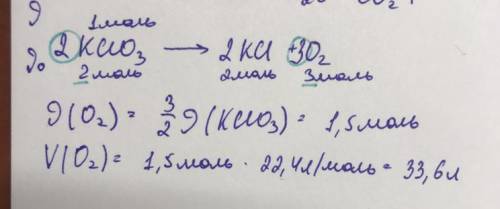 1моль
2KClO₃ → 2KCl +3O₂
2моль 2моль 3моль
ν(O₂) = 3/2 ν(KClO₃) = 1,5моль
V(O₂) = 1,5моль · 22,4л/моль = 33,6л